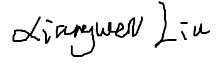 Liangwen Liu